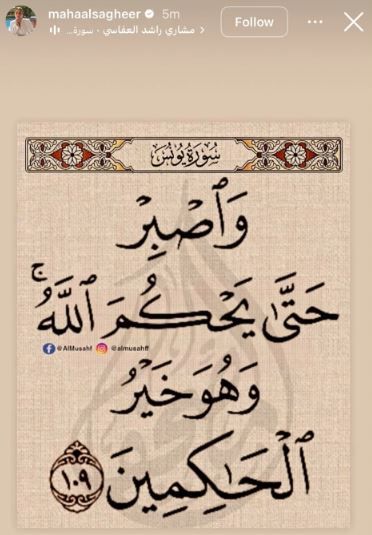 mahaalsagheer 5m
Follow
مشاري راشد العفاسي · سورة...
سورة يونس
وَٱصْبِرْ
حَتَّىٰ يَحْكُمَ ٱللَّهُ ۚ
@AlMusahf @almusahff
وَهُوَ خَيْرُ
ٱلْحَٰكِمِينَ ١٠٩